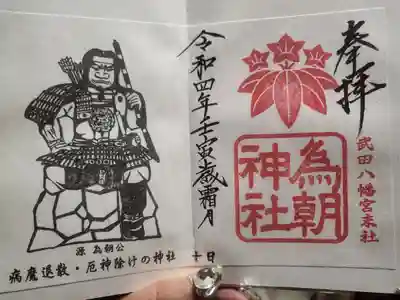 奉拝
武田八幡宮末社
為朝
神社
令和四年壬寅歳霜月
十日
源 為朝公
病魔退散・厄神除けの神社